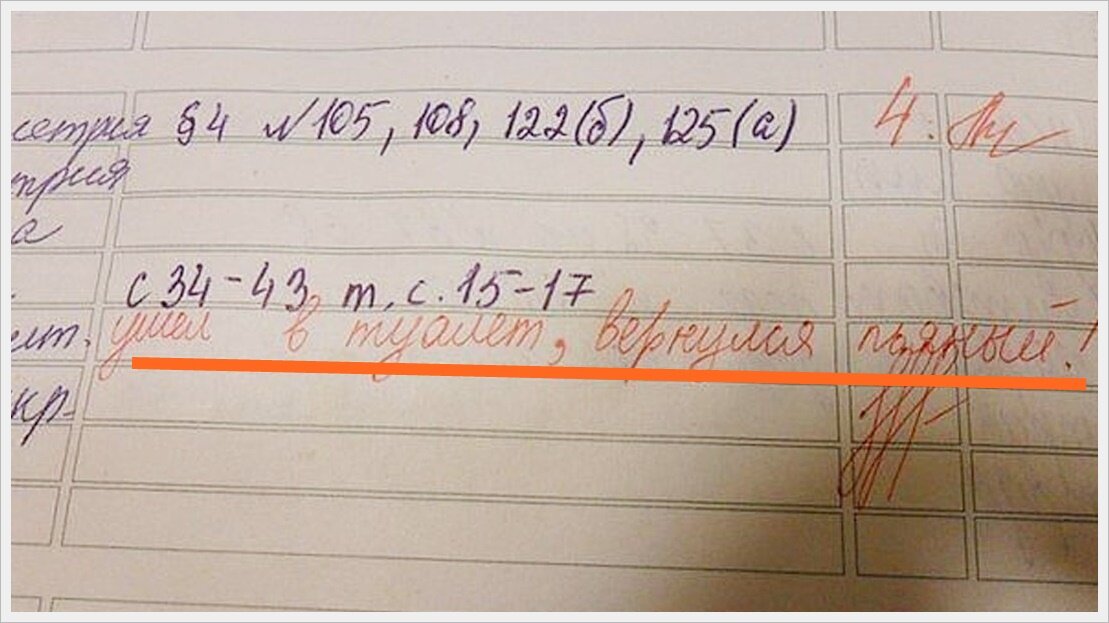 сетрия §4 №105, 108, 122(б), 125(а) 4.
трия
а
с 34-43, т. с. 15-17
ит. ушел в туалет, вернулся пьяный!
кр-